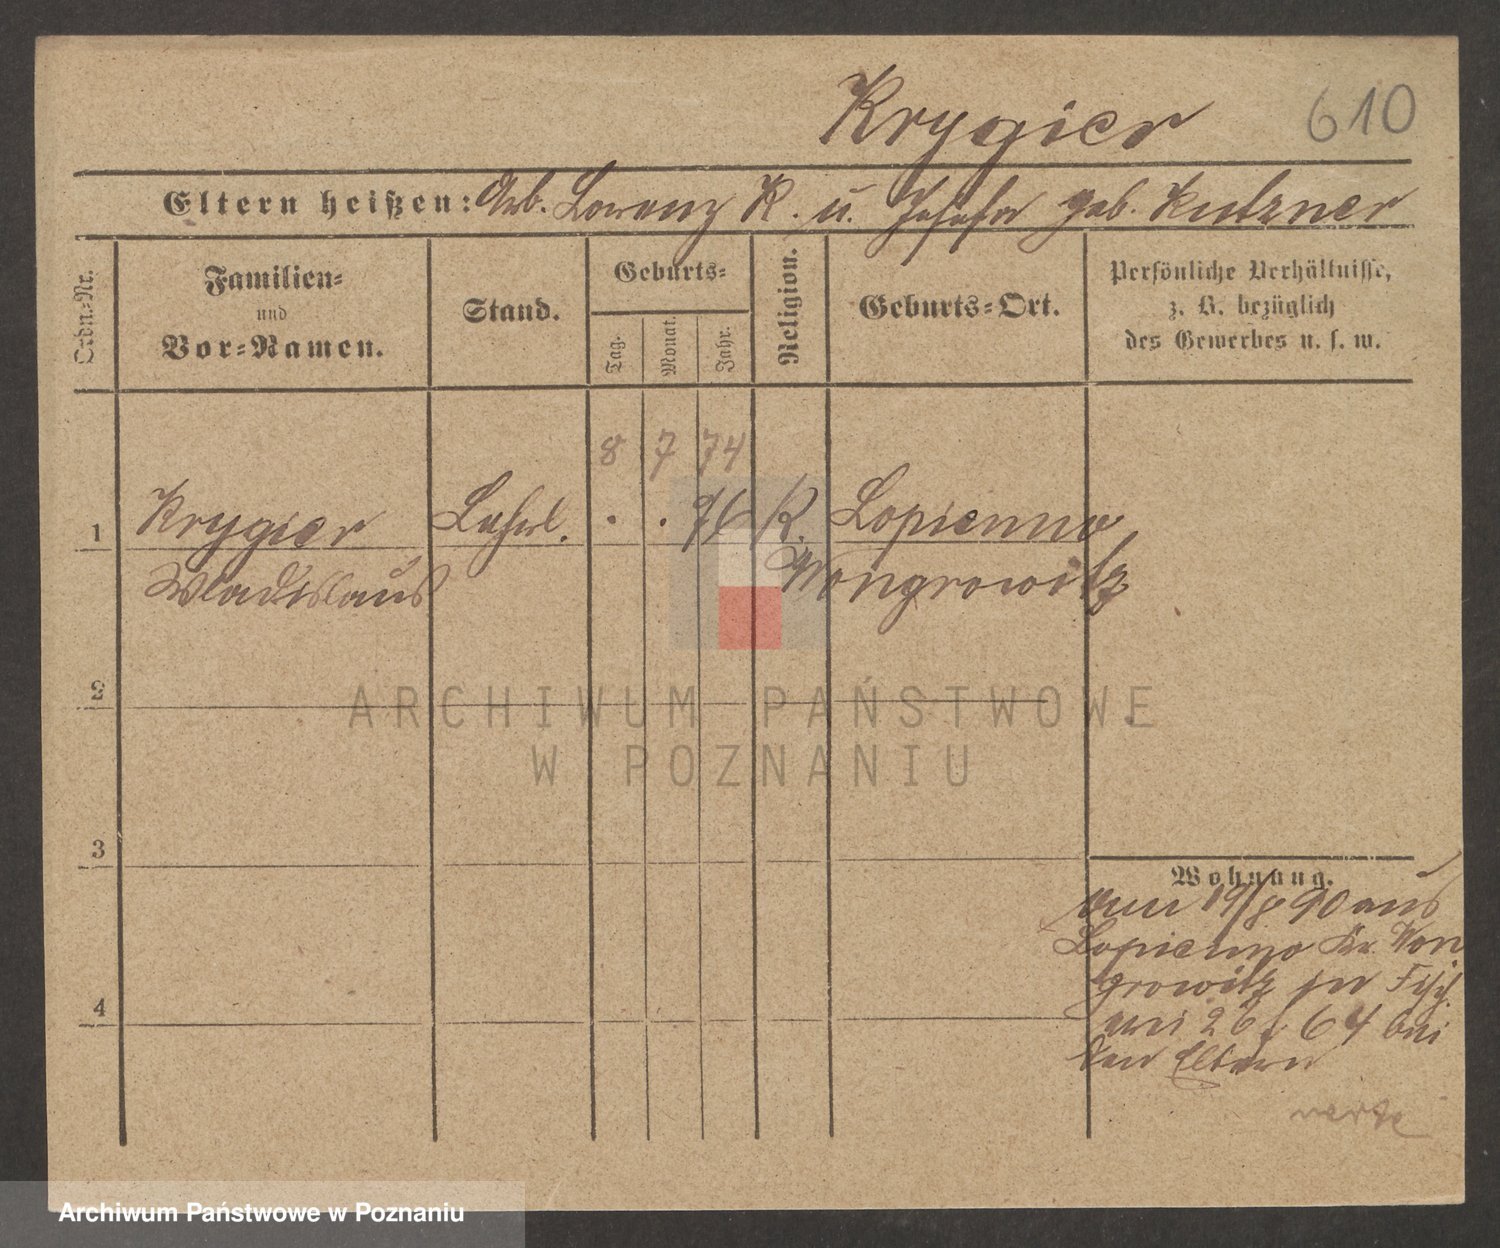 Krygier 610
Eltern heißen: Arb. Lorenz K. u. Josefa geb. Kutzner
Ordn.-Nr.
Familien-
und
Vor-Namen.
Stand.
Geburts-
Tag.
Monat.
Jahr.
Religion.
Geburts-Ort.
Persönliche Verhältnisse,
z. B. bezüglich
des Gewerbes u. s. w.
8 7 74
1 Krygier Lehrl. . . 76 K. Lopienno
Wladislaus Wongrowitz
2
3
4
Wohnung.
19/8 90 aus
Lopienno Kr. Won
growitz
26 64 bei
den Eltern
ARCHIWUM PAŃSTWOWE
W POZNANIU
Archiwum Państwowe w Poznaniu